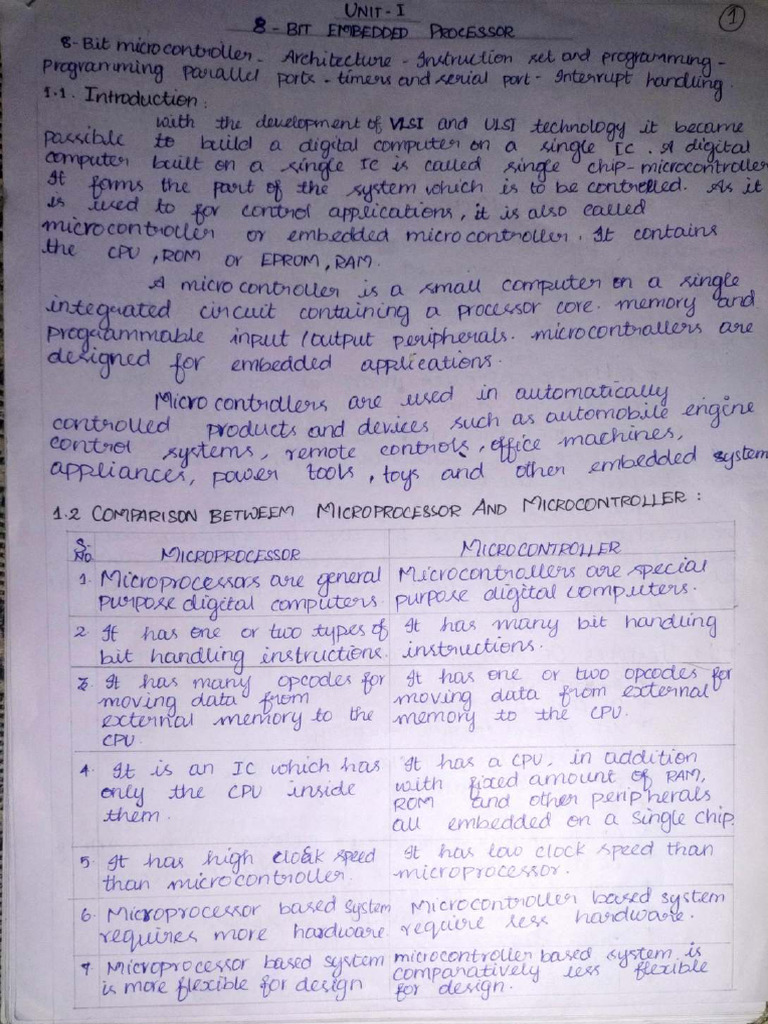 UNIT - I
1
8 - BIT EMBEDDED PROCESSOR
8-Bit microcontroller - Architecture - Instruction set and programming -
programming parallel ports - timers and serial port - Interrupt handling.
1.1. Introduction:
with the development of VLSI and ULSI technology it became
possible to build a digital computer on a single IC. A digital
computer built on a single IC is called single chip-microcontroller
It forms the part of the system which is to be controlled. As it
is used to for control applications, it is also called
microcontroller or embedded microcontroller. It contains
the CPU, ROM or EPROM, RAM.
A microcontroller is a small computer on a single
integrated circuit containing a processor core. memory and
programmable input / output peripherals. microcontrollers are
designed for embedded applications.
Microcontrollers are used in automatically
controlled products and devices such as automobile engine
control systems, remote controls, office machines,
appliances, power tools, toys and other embedded system
1.2 COMPARISON BETWEEM MICROPROCESSOR AND MICROCONTROLLER:
S. No. MICROPROCESSOR MICROCONTROLLER
1. Microprocessors are general Microcontrollers are special
purpose digital computers. purpose digital computers.
2. It has one or two types of It has many bit handling
bit handling instructions. instructions.
3. It has many opcodes for It has one or two opcodes for
moving data from moving data from external
external memory to the memory to the CPU.
CPU.
4. It is an IC which has It has a CPU, in addition
only the CPU inside with fixed amount of RAM,
them. ROM and other peripherals
all embedded on a single chip.
5. It has high clock speed It has low clock speed than
than microcontroller. microprocessor.
6. Microprocessor based system Microcontroller based system
requires more hardware. require less hardware.
7. Microprocessor based system microcontroller based system is
is more flexible for design comparatively less flexible
for design.